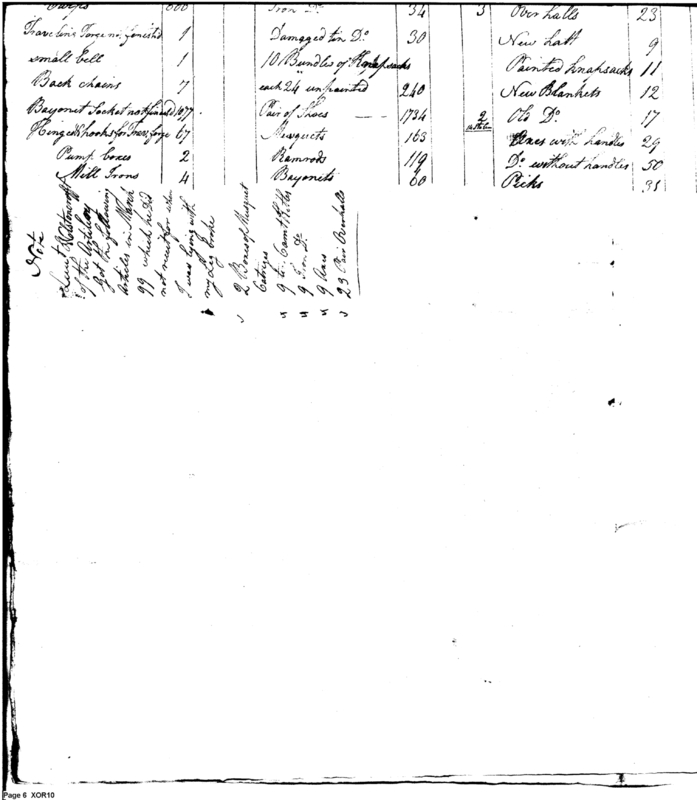 600 Iron Do 34 3 Over halls 23
Travelin Forge not finishd 1 Damaged tin Do 30 New hatt 9
small bell 1 10 Bundles of Knapsacks Painted knapsacks 11
Back chains 7 each 24 unpainted 240 New Blankets 12
Bayonet Socket not finishd 1077 Pair of Shoes 1734 2 Old Do 17
Hinges & hooks for Trav. forge 67 Musquets 163 Axes with handles 29
Pump boxes 2 Ramrods 119 Do without handles 50
Mill Irons 4 Bayonets 60 Piks 35
Note
Lieut
of the Artilery
Got the following
Articles in March
99 which he did
not receipt for when
I was lying with
my Leg broke
2 Boxes of Musquet
9 tin Camp Kitles
9 Iron Do
9 Axes
23 Pair Overhalls
Page 6 XOR10